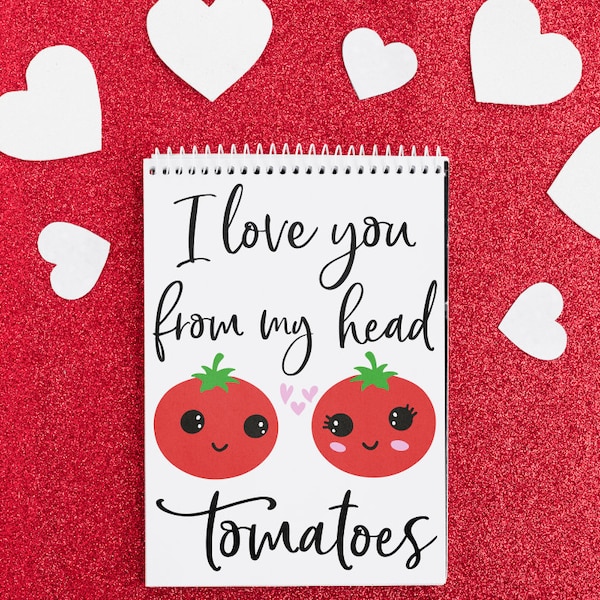 I love you
from my head
tomatoes